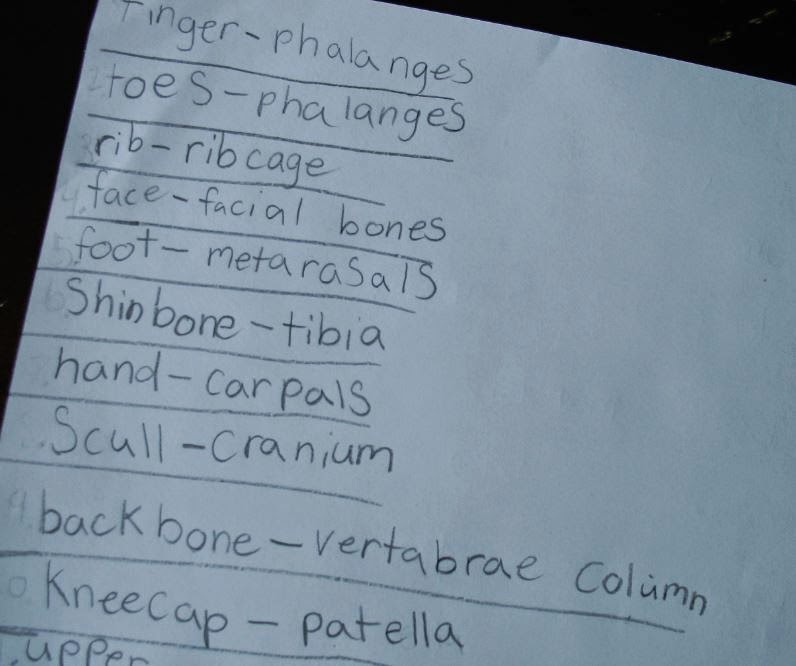 Finger-phalanges
toes-phalanges
rib-ribcage
face-facial bones
foot-metarasals
Shinbone-tibia
hand-carpals
Scull-cranium
9. backbone-vertabrae column
Kneecap-patella
upper